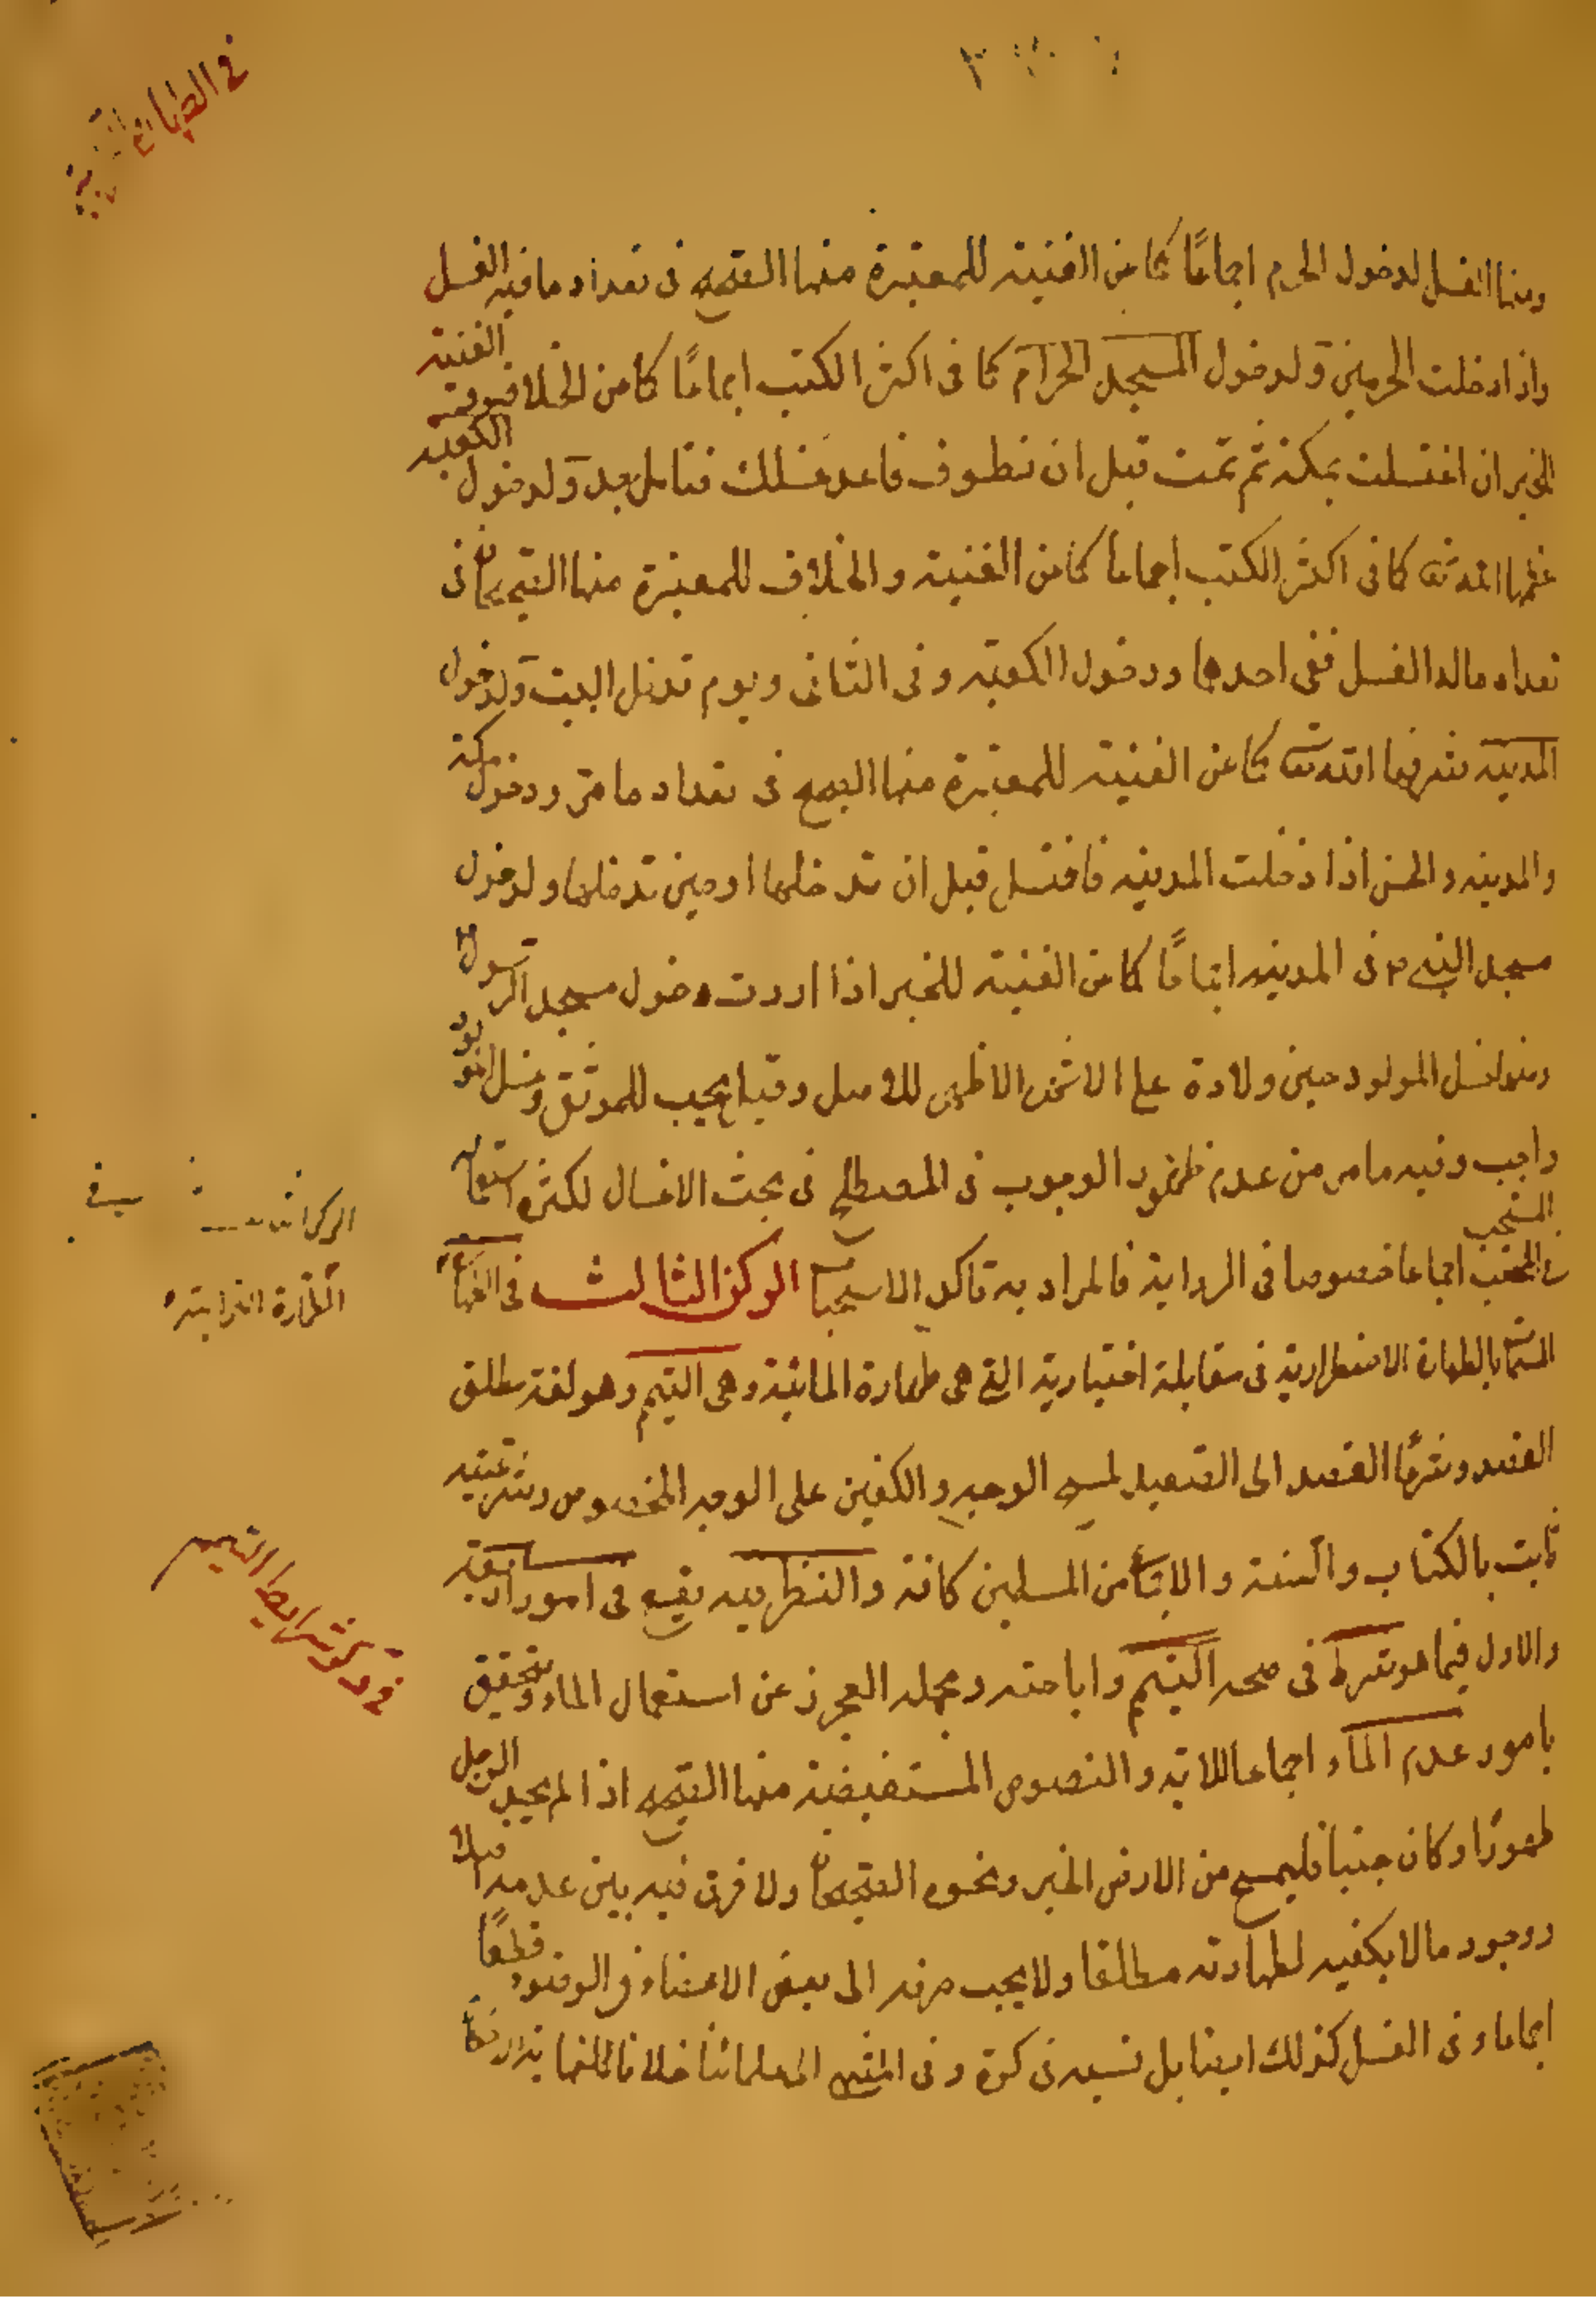 في الطهارة
ومنها الغسل لدخول الحرم اجماعًا كما عن الغنية للمعتبرة منها الصحيح في تعداد ما فيه الغسل
واذا دخلت الحرمين ولدخول المسجد الحرام كما في اكثر الكتب اجماعًا كما من الخلاف الغنية
الخبر ان اغتسلت بمكة ثم نمت قبل ان تطوف فاعد غسلك فتامل جد ولدخول الكعبة
عظمها الله تعالى كما في اكثر الكتب اجماعا كما من الغنية والخلاف للمعتبرة منها الصحيحان في
تعداد ماله الغسل ففي احدها ودخول الكعبة وفي الثاني ويوم تدخل البيت ولدخول
المدينة شرفها الله تعالى كما عن الغنية للمعتبرة منها الصحيح في تعداد ما مر ودخول مكة
والمدينة والحسن اذا دخلت المدينة فاغتسل قبل ان تدخلها او حين تدخلها ولدخول
مسجد النبي ص في المدينة اجماعًا كما من الغنية للخبر اذا اردت دخول مسجد الرسول
ومنها غسل المولود حين ولادة على الاشهر الاظهر للاصل وقيل يجب للموثق وغسل المولود
واجب وفيه ما مر من عدم ظهور الوجوب في المصطلح في بحث الاغسال لكثرة استعماله
في المستحب اجماعا خصوصا في الرواية فالمراد به تاكد الاستحباب الركن الثالث في الطهارة
المسماة بالطهارة الاضطرارية في مقابلة اختيارية التي هي طهارة المائية وهي التيمم وهو لغة مطلق
القصد وشرعًا القصد الى الصعيد لمسح الوجه والكفين على الوجه المخصوص وشرعيته
ثابت بالكتاب والسنة والاجماع من المسلمين كافة والنظر فيه يقع في امور اربعة
والاول فيما هو شرط في صحة التيمم واباحته ومجمله العجز عن استعمال الماء ويتحقق
بامور عدم الماء اجماعا للاية والنصوص المستفيضة منها الصحيح اذا لم يجد الرجل
طهورًا وكان جنبا فليمسح من الارض الخبر ونحوه الصحيحان ولا فرق فيه بين عدمه اصلا
ووجود ما لا يكفيه لطهارته مطلقا ولا يجب صرفه الى بعض الاعضاء في الوضوء قطعًا
اجماعا وفي الغسل كذلك ايضا بل نسبه في كرة وفي المنتهى الى علمائنا خلافا
الركن
الطهارة الترابية
في ذكر شرايط التيمم